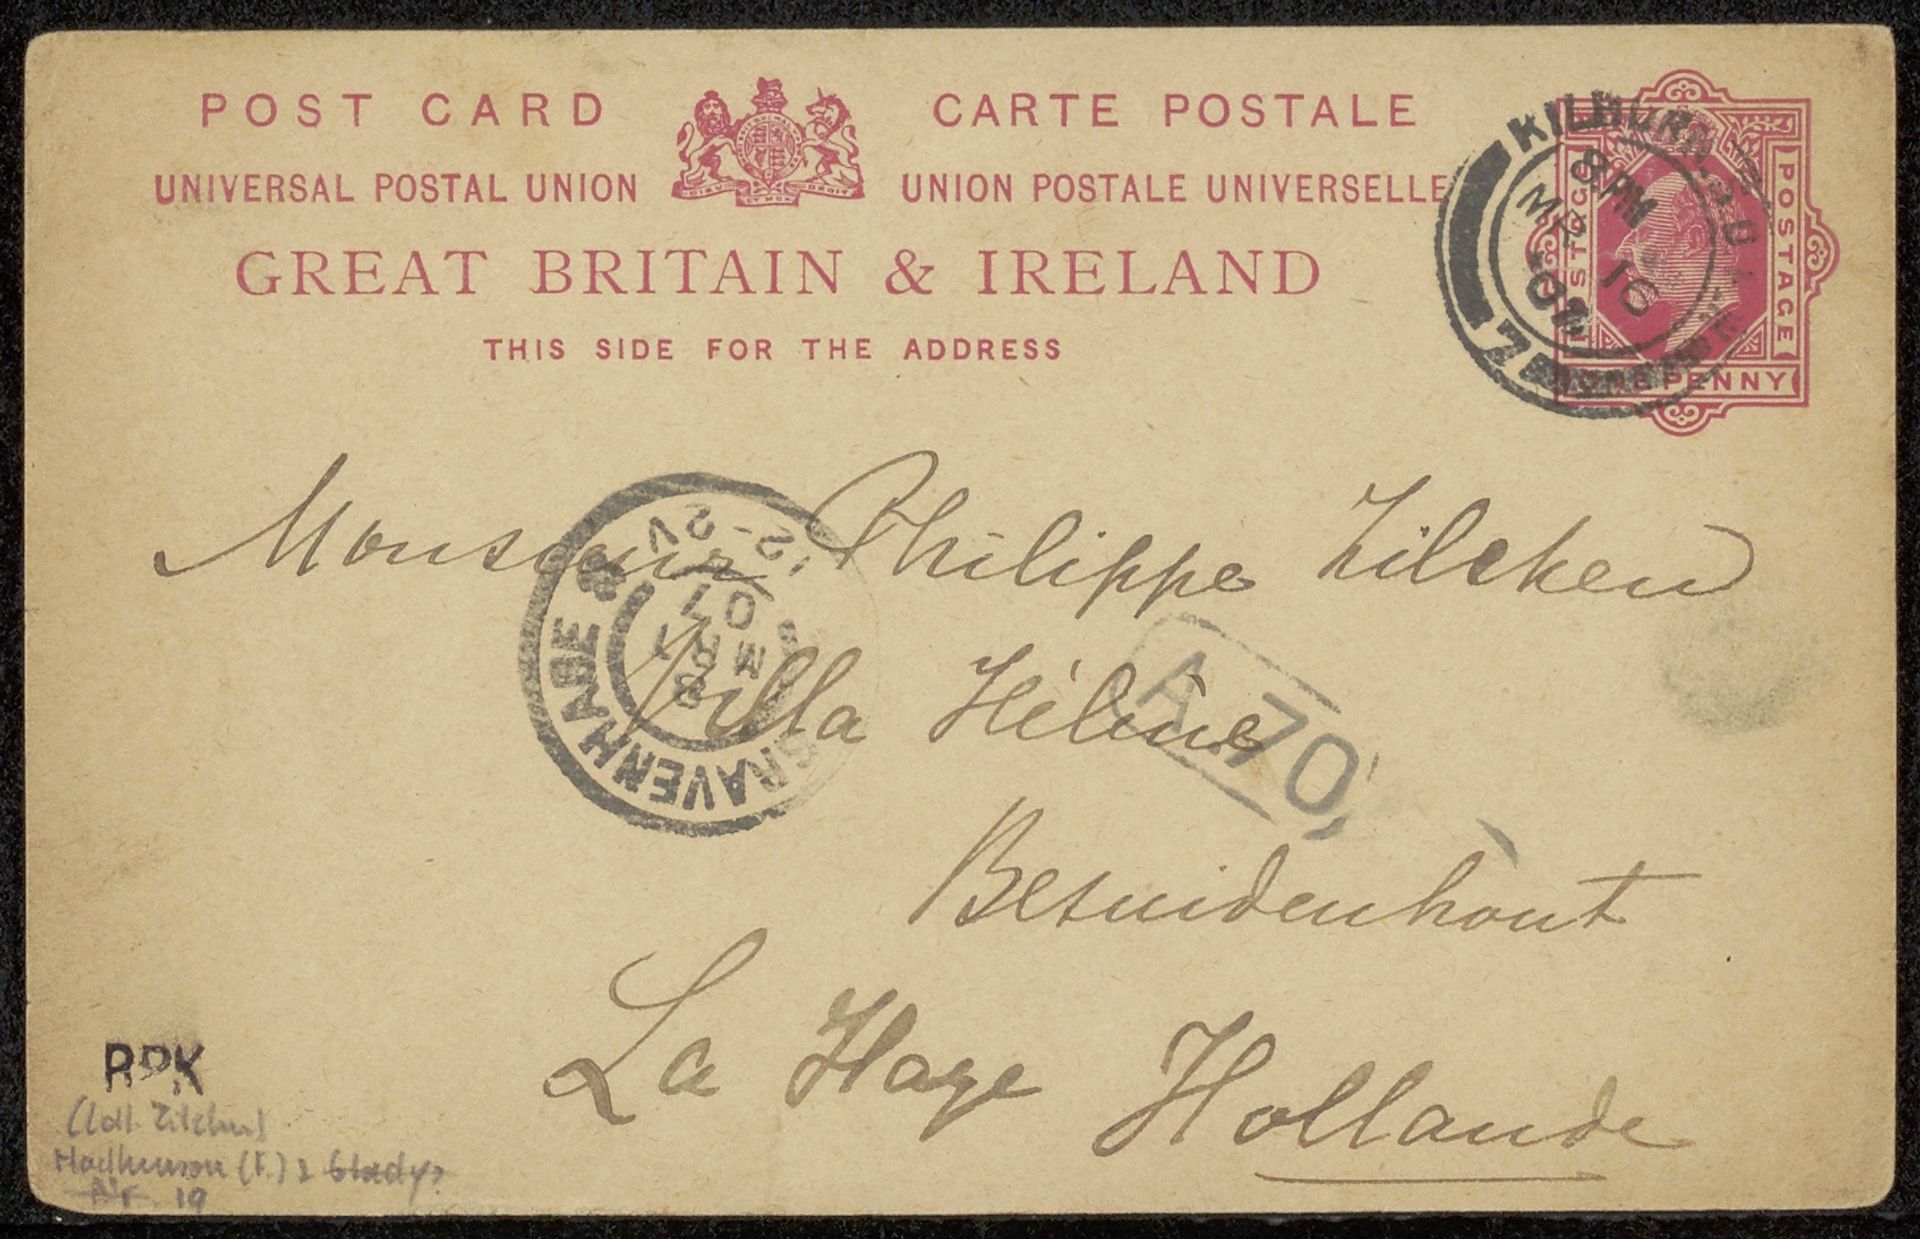 POST CARD CARTE POSTALE
UNIVERSAL POSTAL UNION UNION POSTALE UNIVERSELLE
GREAT BRITAIN & IRELAND
THIS SIDE FOR THE ADDRESS
POSTAGE
ONE PENNY
KILBURN
8 PM
MZ 10
07
7
Monsieur Philippe Zilcken
Villa Hélène
Besuidenhout
La Haye Hollande
'SGRAVENHAGE
12-2V
07
MRT
8
A.70
RPK
(Coll. Zilcken)
(F.) & Gladys
19